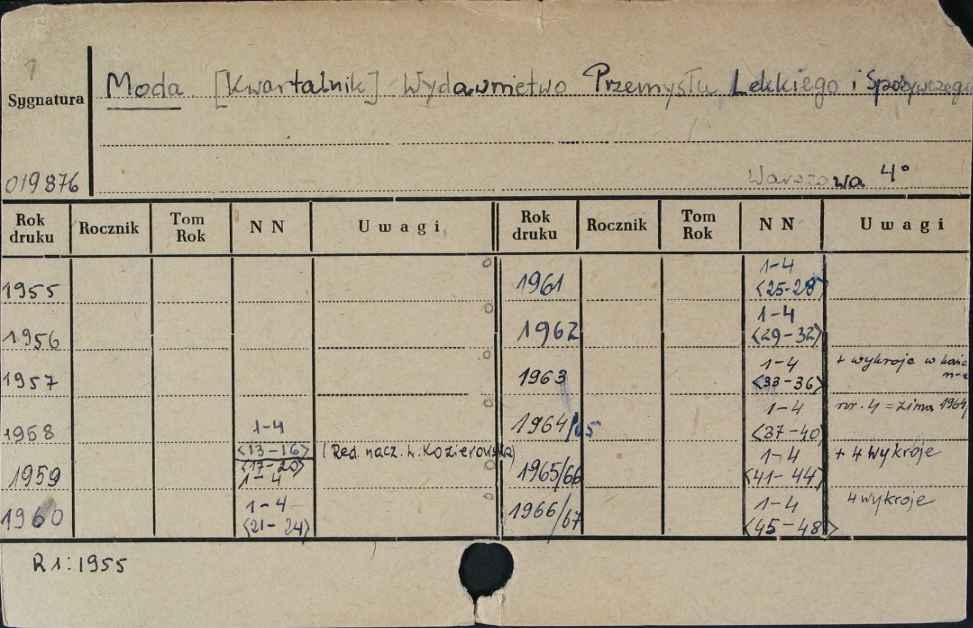 Sygnatura
Moda [Kwartalnik] Wydawnictwo Przemysłu Lekkiego i Spożywczego
019876
Warszawa 4°
Rok druku Rocznik Tom Rok NN Uwagi Rok druku Rocznik Tom Rok NN Uwagi
1955 1961 1-4 <25-28>
1956 1962 1-4 <29-32>
1957 1963 1-4 <33-36> + wykroje w
1958 1-4 <13-16> (Red. nacz. L. Kozierowska) 1964/65 1-4 <37-40> nr. 4 = zima 1964/
1959 <17-20> 1-4 1965/66 1-4 <41-44> + 4 wykroje
1960 1-4 <21-24> 1966/67 1-4 <45-48> 4 wykroje
R 1: 1955